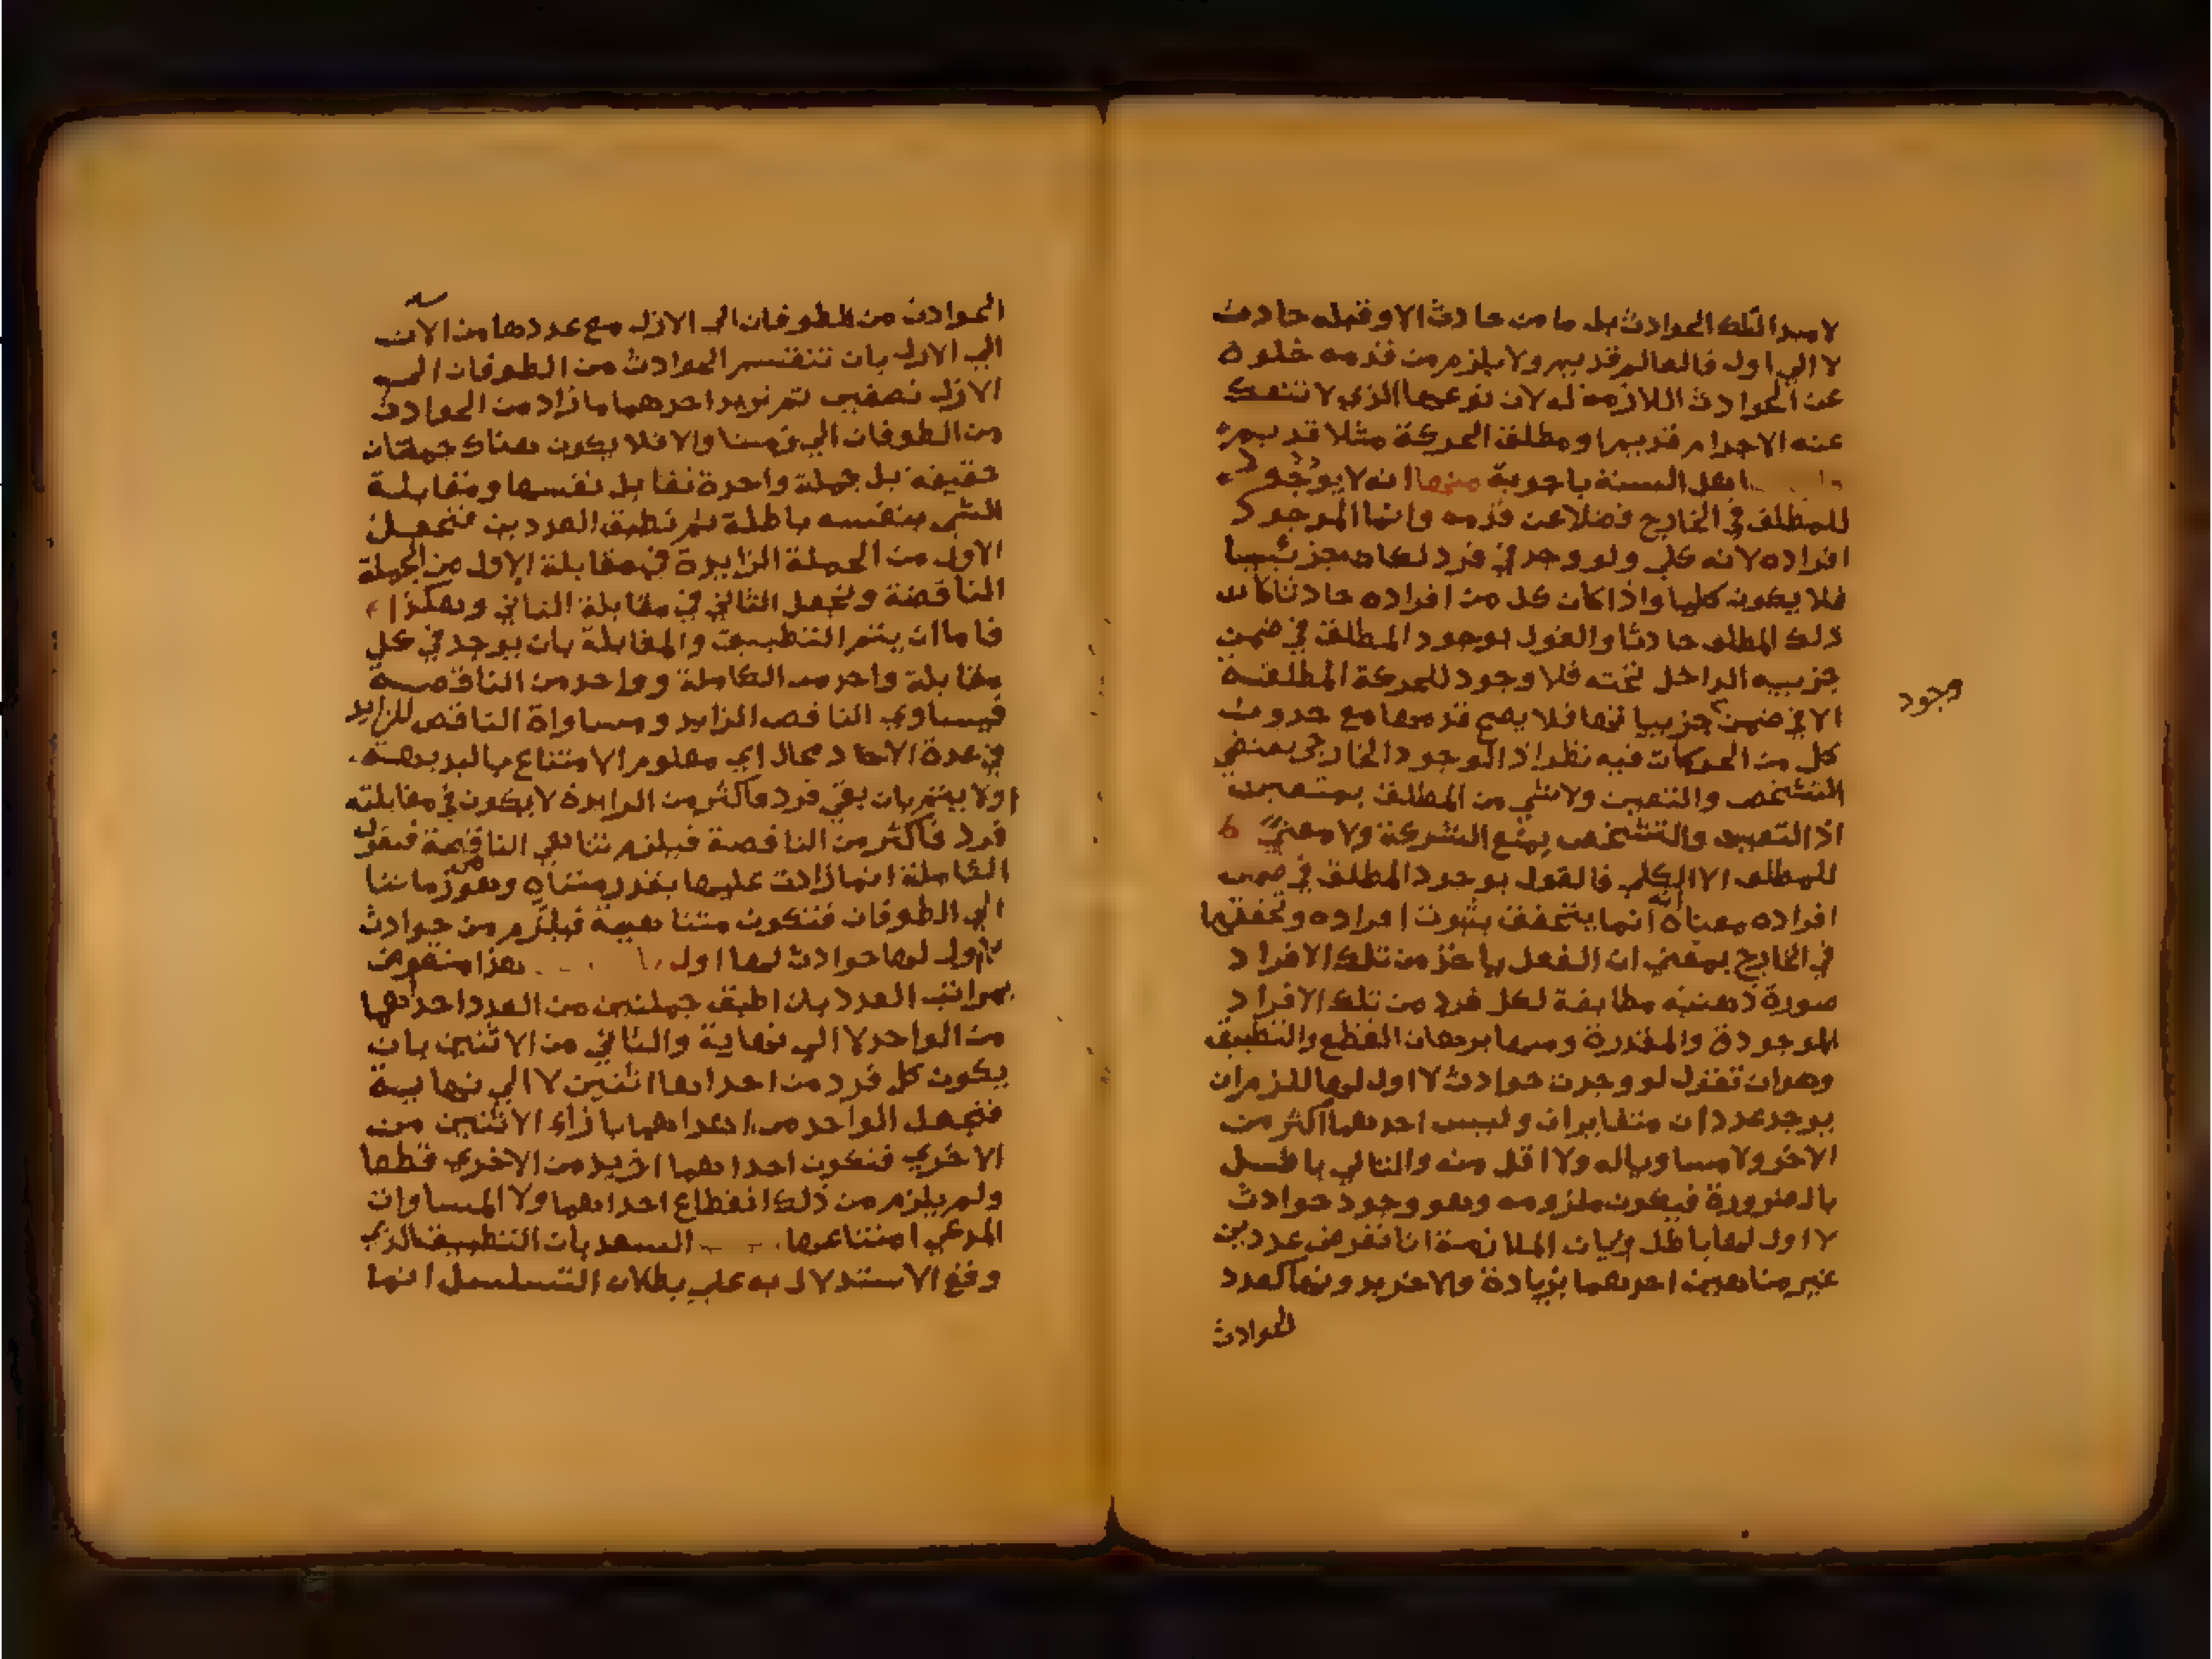 لا مبدا لتلك الحوادث بل ما من حادث الا وقبله حادث
لا الي اول فالعالم قديم ولا يلزم من قدمه خلوه
عن الحوادث اللازمة له لان نوعها الذي لا تنفك
عنه الاجرام قديم او مطلق الحركة مثلا قديمة
اهل السنة باجوبة منها انه لا يوجد
للمطلق في الخارج فضلا عن قدمه وانما الموجود
افراده لانه كلي ولو وجد في فرد لكان جزئيا
فلا يكون كليا واذا كان كل من افراده حادثا كان
ذلك المطلق حادثا والقول بوجود المطلق في ضمن
جزييه الداخل تحته فلا وجود للحركة المطلقة
وجود
الا في ضمن جزيياتها فلا يصح قدمها مع حدوث
كل من الحركات فيه نظر اذ الوجود الخارجي يقتضي
التشخص والتعين ولا شي من المطلق بمتعين
اذ التعيين والتشخص يمنع الشركة ولا معني
للمطلق الا الكلي فالقول بوجود المطلق في ضمن
افراده معناه انه انما يتحقق بثبوت افراده وتحققها
في الخارج بمعني ان العقل ياخذ من تلك الافراد
صورة ذهنية مطابقة لكل فرد من تلك الافراد
الموجودة والمقدرة ومنها برهان القطع والتطبيق
وهو ان تقول لو وجدت حوادث لا اول لها للزم ان
يوجد عددان متغايران وليس احدهما اكثر من
الاخر ولا مساويا له ولا اقل منه والتالي باطل
بالضرورة فيكون ملزومه وهو وجود حوادث
لا اول لها باطل وبيان الملازمة انا نفرض عددين
غير متناهيين احدهما بزيادة والاخر بدونها كعدد
الحوادث
الحوادث من الطوفان الي الازل مع عددها من الان
الي الازل بان تنقسم الحوادث من الطوفان الي
الازل نصفين ثم نزيد احدهما ما زاد من الحوادث
من الطوفان الي زمننا والا فلا يكون هناك جملتان
حقيقة بل جملة واحدة نقابل نفسها ومقابلة
الشي بنفسه باطلة ثم نطبق العددين فنجعل
الاول من الجملة الزايدة في مقابلة الاول من الجملة
الناقصة ونجعل الثاني في مقابلة الثاني وهكذا
فاما ان يتم التطبيق والمقابلة بان يوجد في كل
مقابلة واحد من الكاملة وواحد من الناقصة
فيساوي الناقص الزايد ومساواة الناقص للزايد
في عدة الاحاد محال اي معلوم الامتناع بالبديهة
او لا يتم بان بقي فرد فاكثر من الزايدة لا يكون في مقابلته
فرد فاكثر من الناقصة فيلزم تناهي الناقصة فنقول
الكاملة انما زادت عليها بقدر متناه وهو من زماننا
الي الطوفان فتكون متناهية فيلزم من حوادث
لا اول لها حوادث لها اول هذا منقوض
بمراتب العدد بان اطبق جملتين من العدد احداهما
من الواحد لا الي نهاية والثاني من الاثنين بان
يكون كل فرد من احداها اثنين لا الي نهاية
فنجعل الواحد من احداهما بازاء الاثنين من
الاخري فتكون احداهما ازيد من الاخري قطعا
ولم يلزم من ذلك انقطاع احداهما ولا المساوات
المدعي امتناعها السعد بان التطبيق الذي
وقع الاستدلال به علي بطلان التسلسل انما